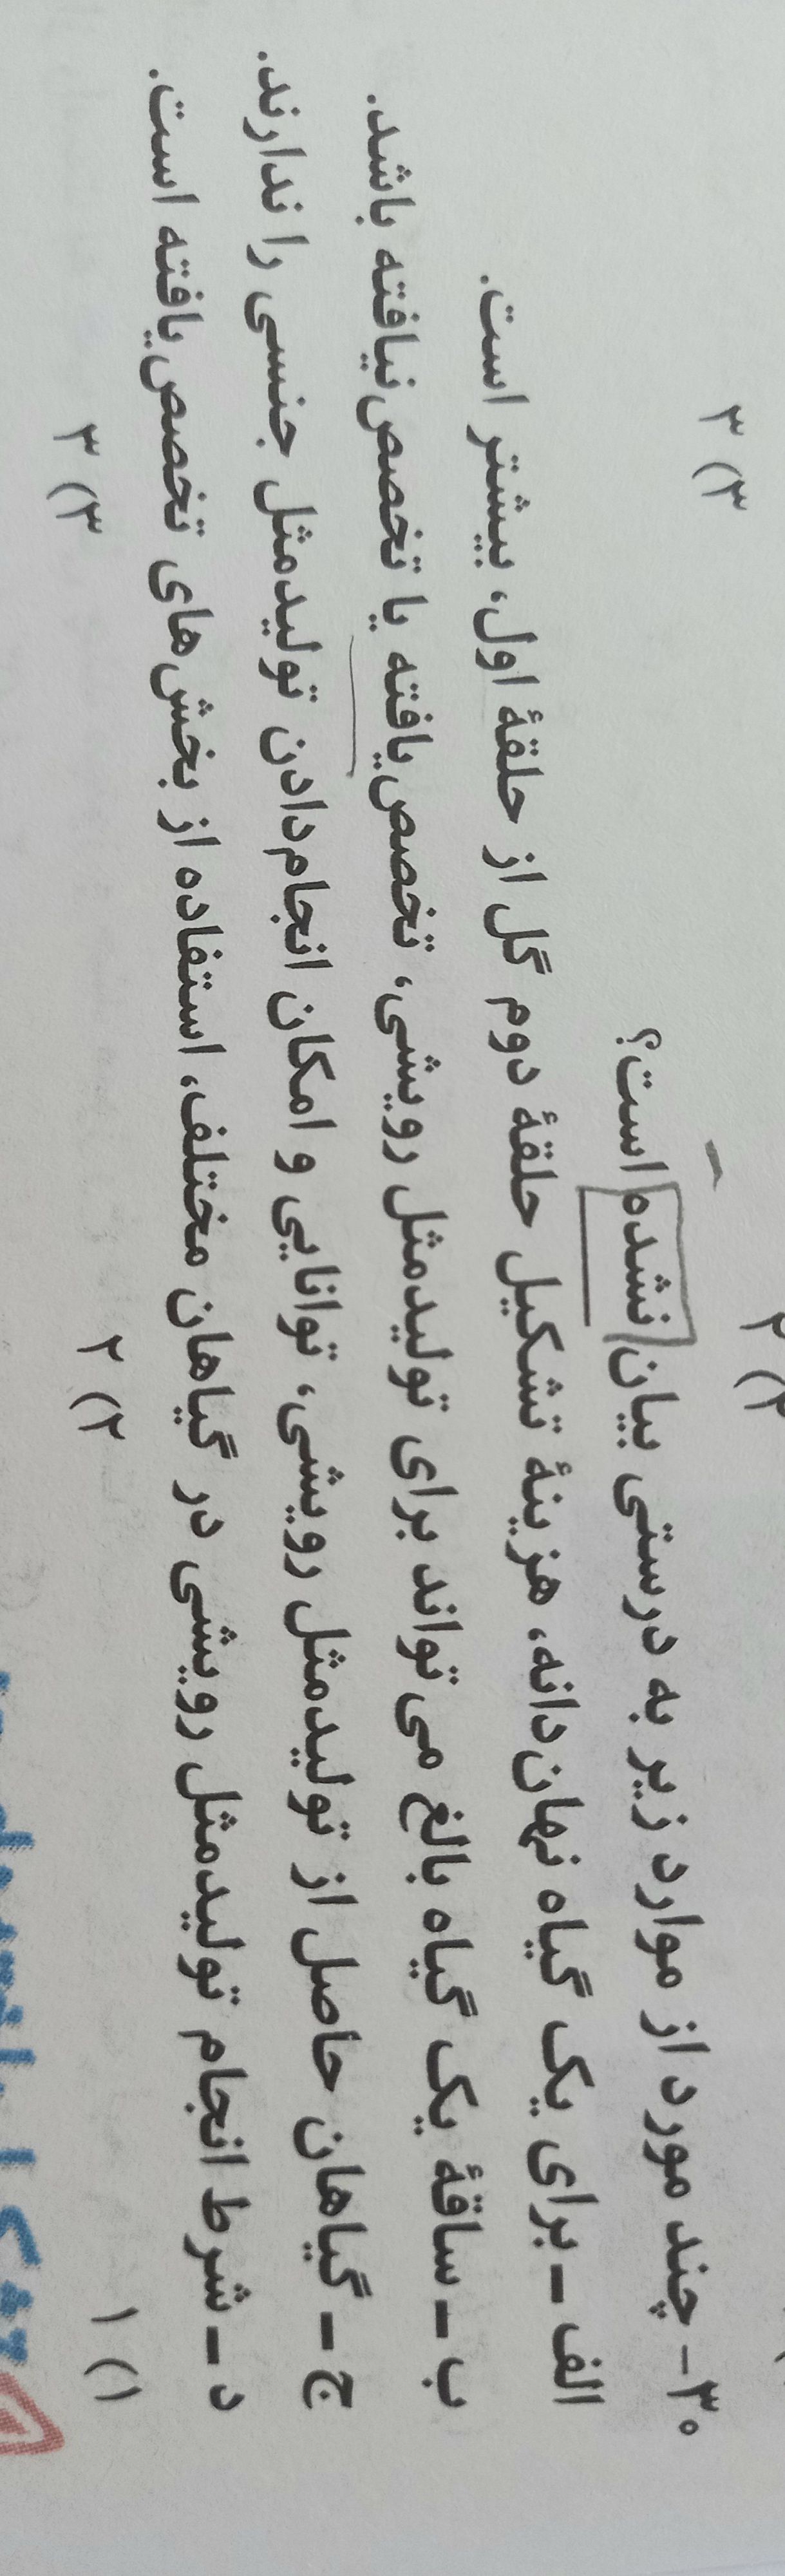 ۳) ۳
۳۰- چند مورد از موارد زیر به درستی بیان نشده است؟
الف - برای یک گیاه نهان‌دانه، هزینهٔ تشکیل حلقهٔ دوم گل از حلقهٔ اول، بیشتر است.
ب - ساقهٔ یک گیاه بالغ می‌تواند برای تولیدمثل رویشی، تخصص‌یافته یا تخصص‌نیافته باشد.
ج - گیاهان حاصل از تولیدمثل رویشی، توانایی و امکان انجام‌دادن تولیدمثل جنسی را ندارند.
د - شرط انجام تولیدمثل رویشی در گیاهان مختلف، استفاده از بخش‌های تخصص‌یافته است.
۱) ۱ ۲) ۲ ۳) ۳